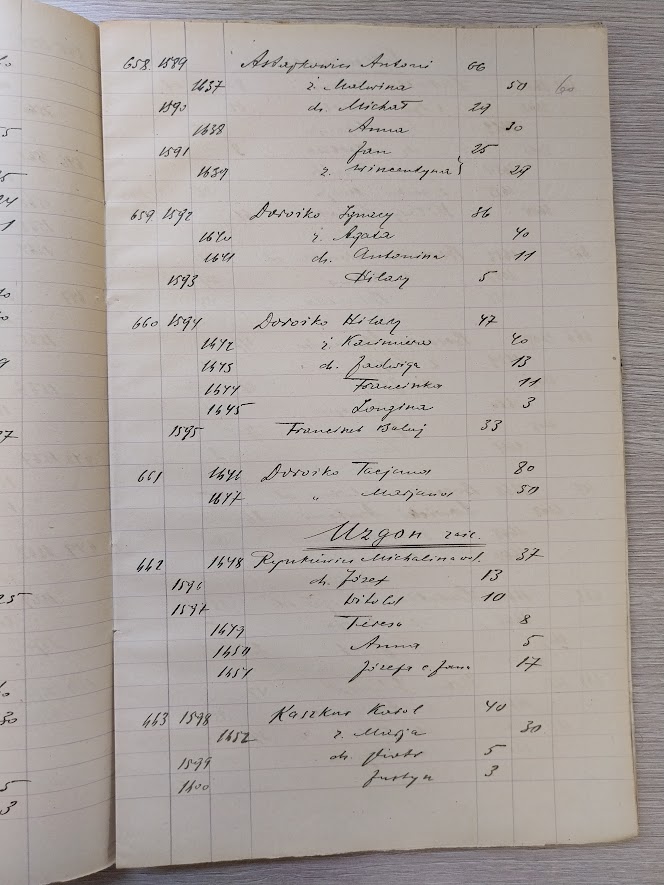 658 1589 Astapkowicz Antoni 66
1637 ż. Malwina 50 60
1590 dz. Michał 29
1638 Anna 30
1591 Jan 25
1639 ż. Wincentyna 29
659 1592 Doroiko Ignacy 86
1640 ż. Agata 40
1641 dz. Antonina 11
1593 Hilary 5
660 1594 Doroiko Hilary 47
1642 ż. Kazimiera 40
1643 dz. Jadwiga 13
1644 Francinka 11
1645 Longina 3
1595 Franciszek 33
661 1646 Doroiko Tacjana 80
1647 „ Marjana 50
Uzgon zaśc.
662 1648 Rynkiewicz Michalina wd. 37
1596 dz. Józef 13
1597 Witold 10
1649 Teresa 8
1650 Anna 5
1651 Józefa c. Jana 17
663 1598 Kaszkur Karol 40
1652 ż. Marja 30
1599 dz. Piotr 5
1600 Justyn 3